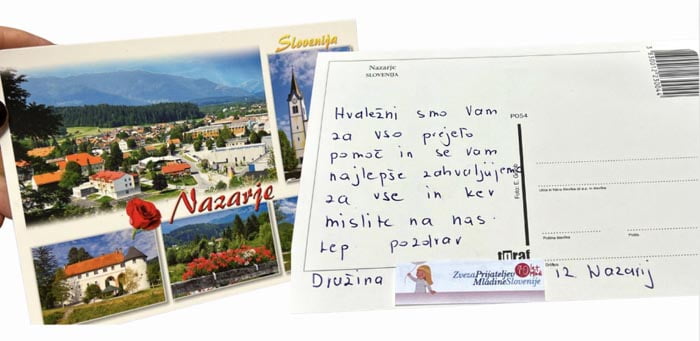 Slovenija
Nazarje
Nazarje
SLOVENIJA
Hvaležni smo Vam
za vso prijeto
pomoč in se vam
najlepše zahvaljujemo
za vse in ker
mislite na nas.
Lep pozdrav
Družina
Zveza Prijateljev
Mladine Slovenije
iz Nazarij
P054